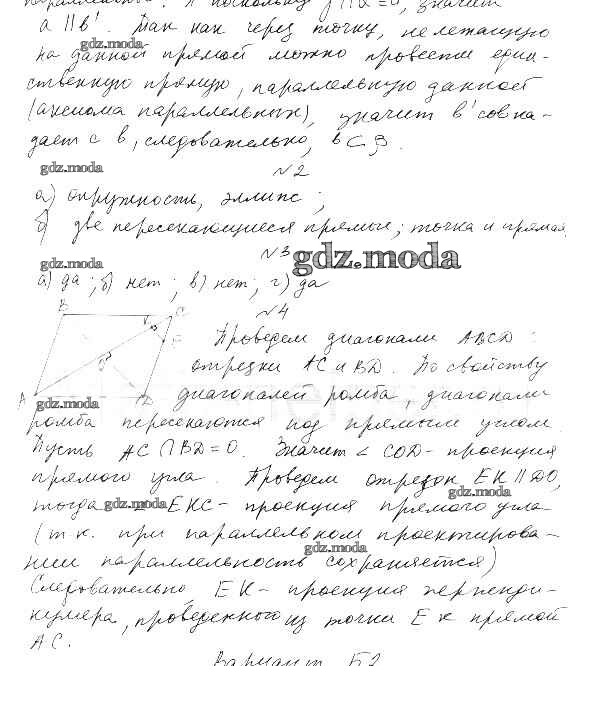 параллельной. А поскольку β∩α=b, значит
a ∥ b'. Так как через точку, не лежащую
на данной прямой можно провести един-
gdz.moda
ственную прямую, параллельную данной
(аксиома параллельных), значит b' совпа-
дает с b, следовательно, b⊂β.
gdz.moda
N2
а) окружность, эллипс;
б) две пересекающиеся прямые; точка и прямая
N3
gdz.moda
gdz.moda
а) да; б) нет; в) нет; г) да
N4
B C
K
E
O
A D
gdz.moda
Проведем диагонали ABCD:
отрезки AC и BD. По свойству
диагоналей ромба, диагонали
ромба пересекаются под прямым углом.
Пусть AC ∩ BD = O. Значит < COD - проекция
прямого угла. Проведем отрезок EK ∥ DO,
gdz.moda
тогда EKC - проекция прямого угла
gdz.moda
(т.к. при параллельном проектирова-
gdz.moda
нии параллельность сохраняется)
Следовательно, EK - проекция перпенди-
куляра, проведенного из точки E к прямой
AC.
Вариант Б2